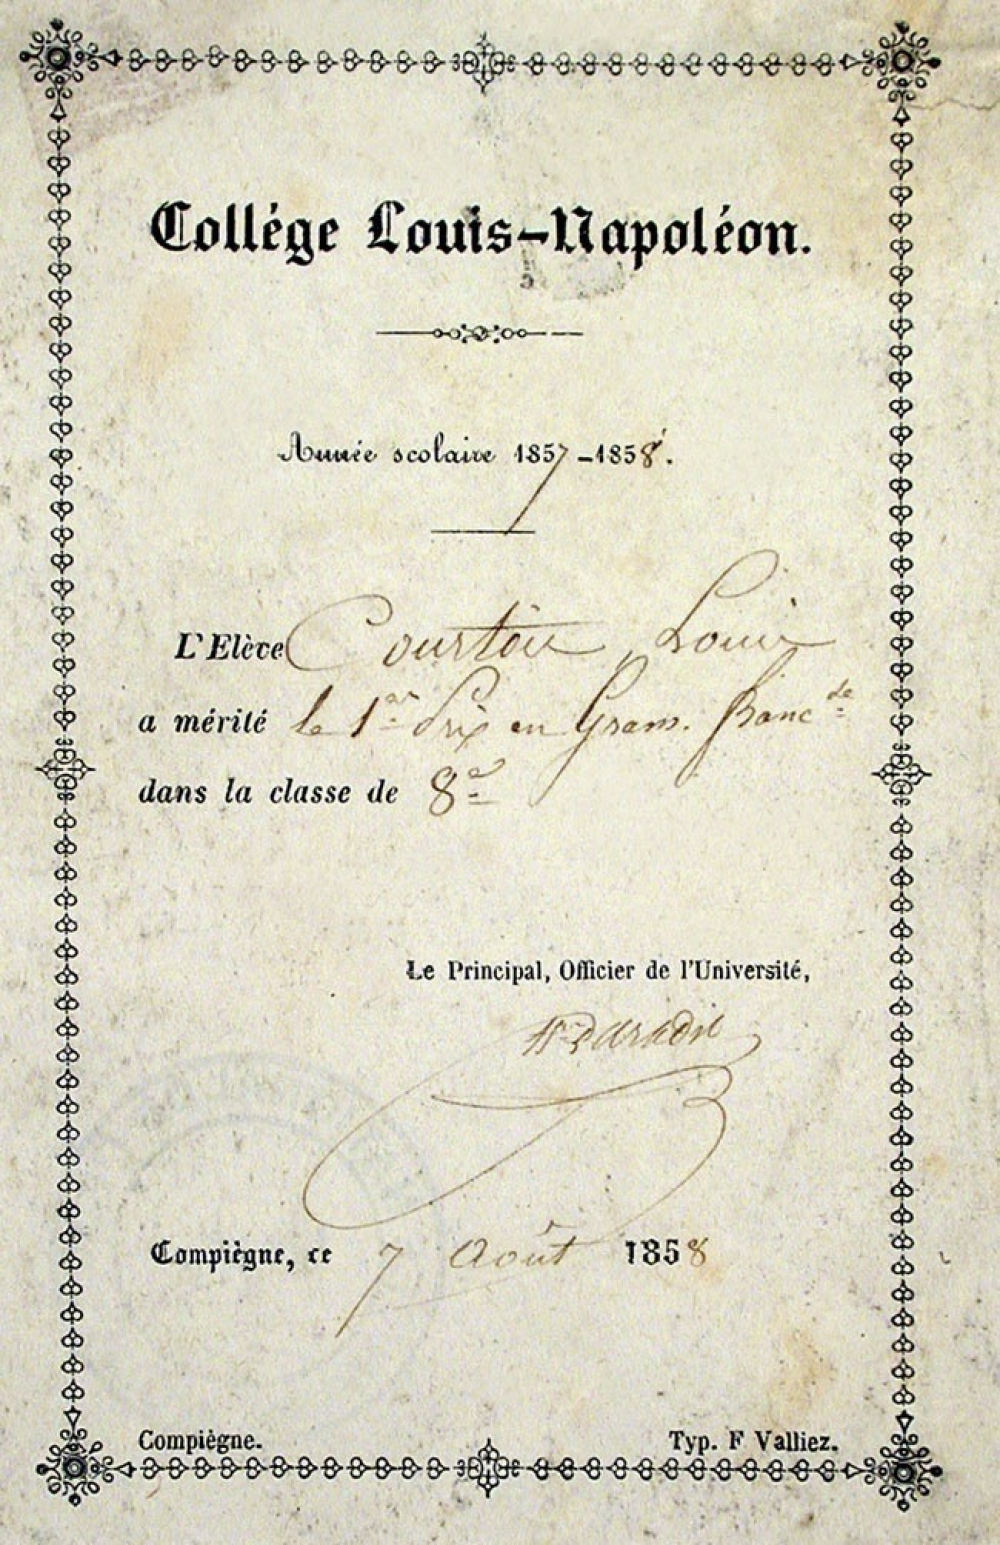 Collége Louis-Napoléon.
Année scolaire 1857-1858.
L'Elève Courtois, Louis
a mérité le 1er Prix en Gram. Franc
dans la classe de 8e
Le Principal, Officier de l'Université,
Compiègne, ce 7 Août 1858
Compiègne. Typ. F Valliez.